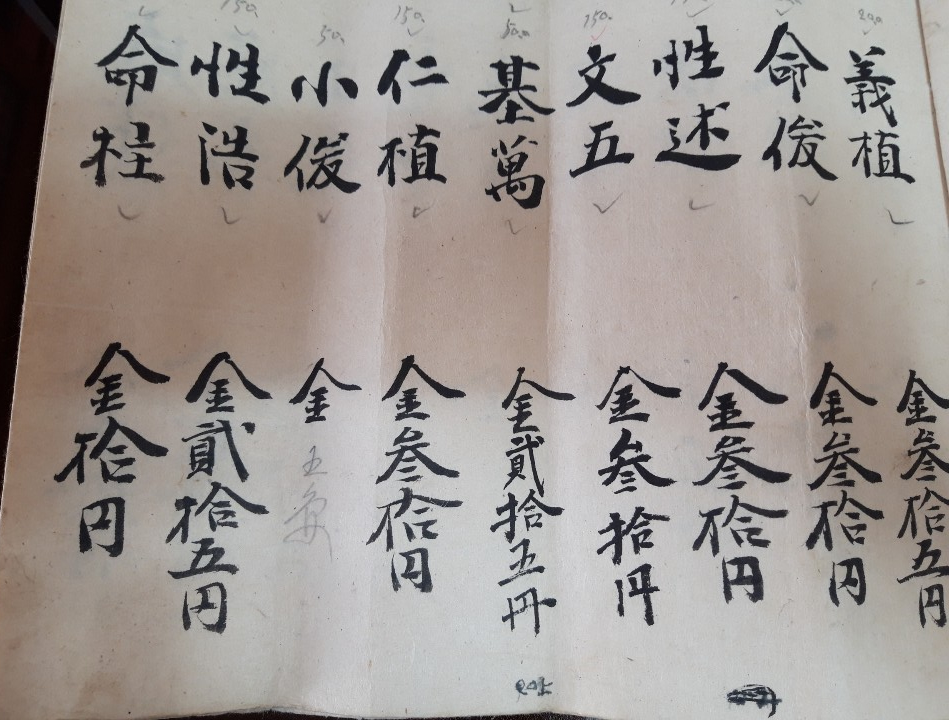 義植 金叁拾五円
命俊 金叁拾円
性述 金叁拾円
文五 金叁拾円
基萬 金貳拾五円
仁植 金叁拾円
小俊 金五
性浩 金貳拾五円
命柱 金拾円